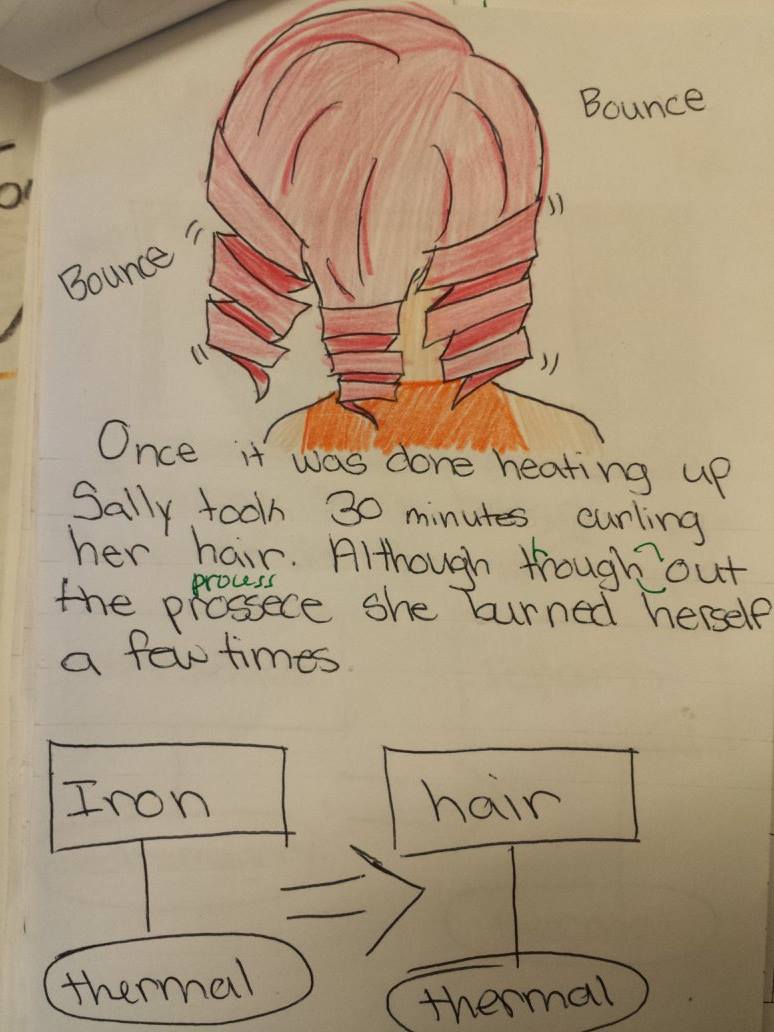 Bounce
Bounce
Once it was done heating up
Sally took 30 minutes curling
her hair. Although though out
process
the prossece she burned herself
a few times.
Iron
hair
thermal
thermal